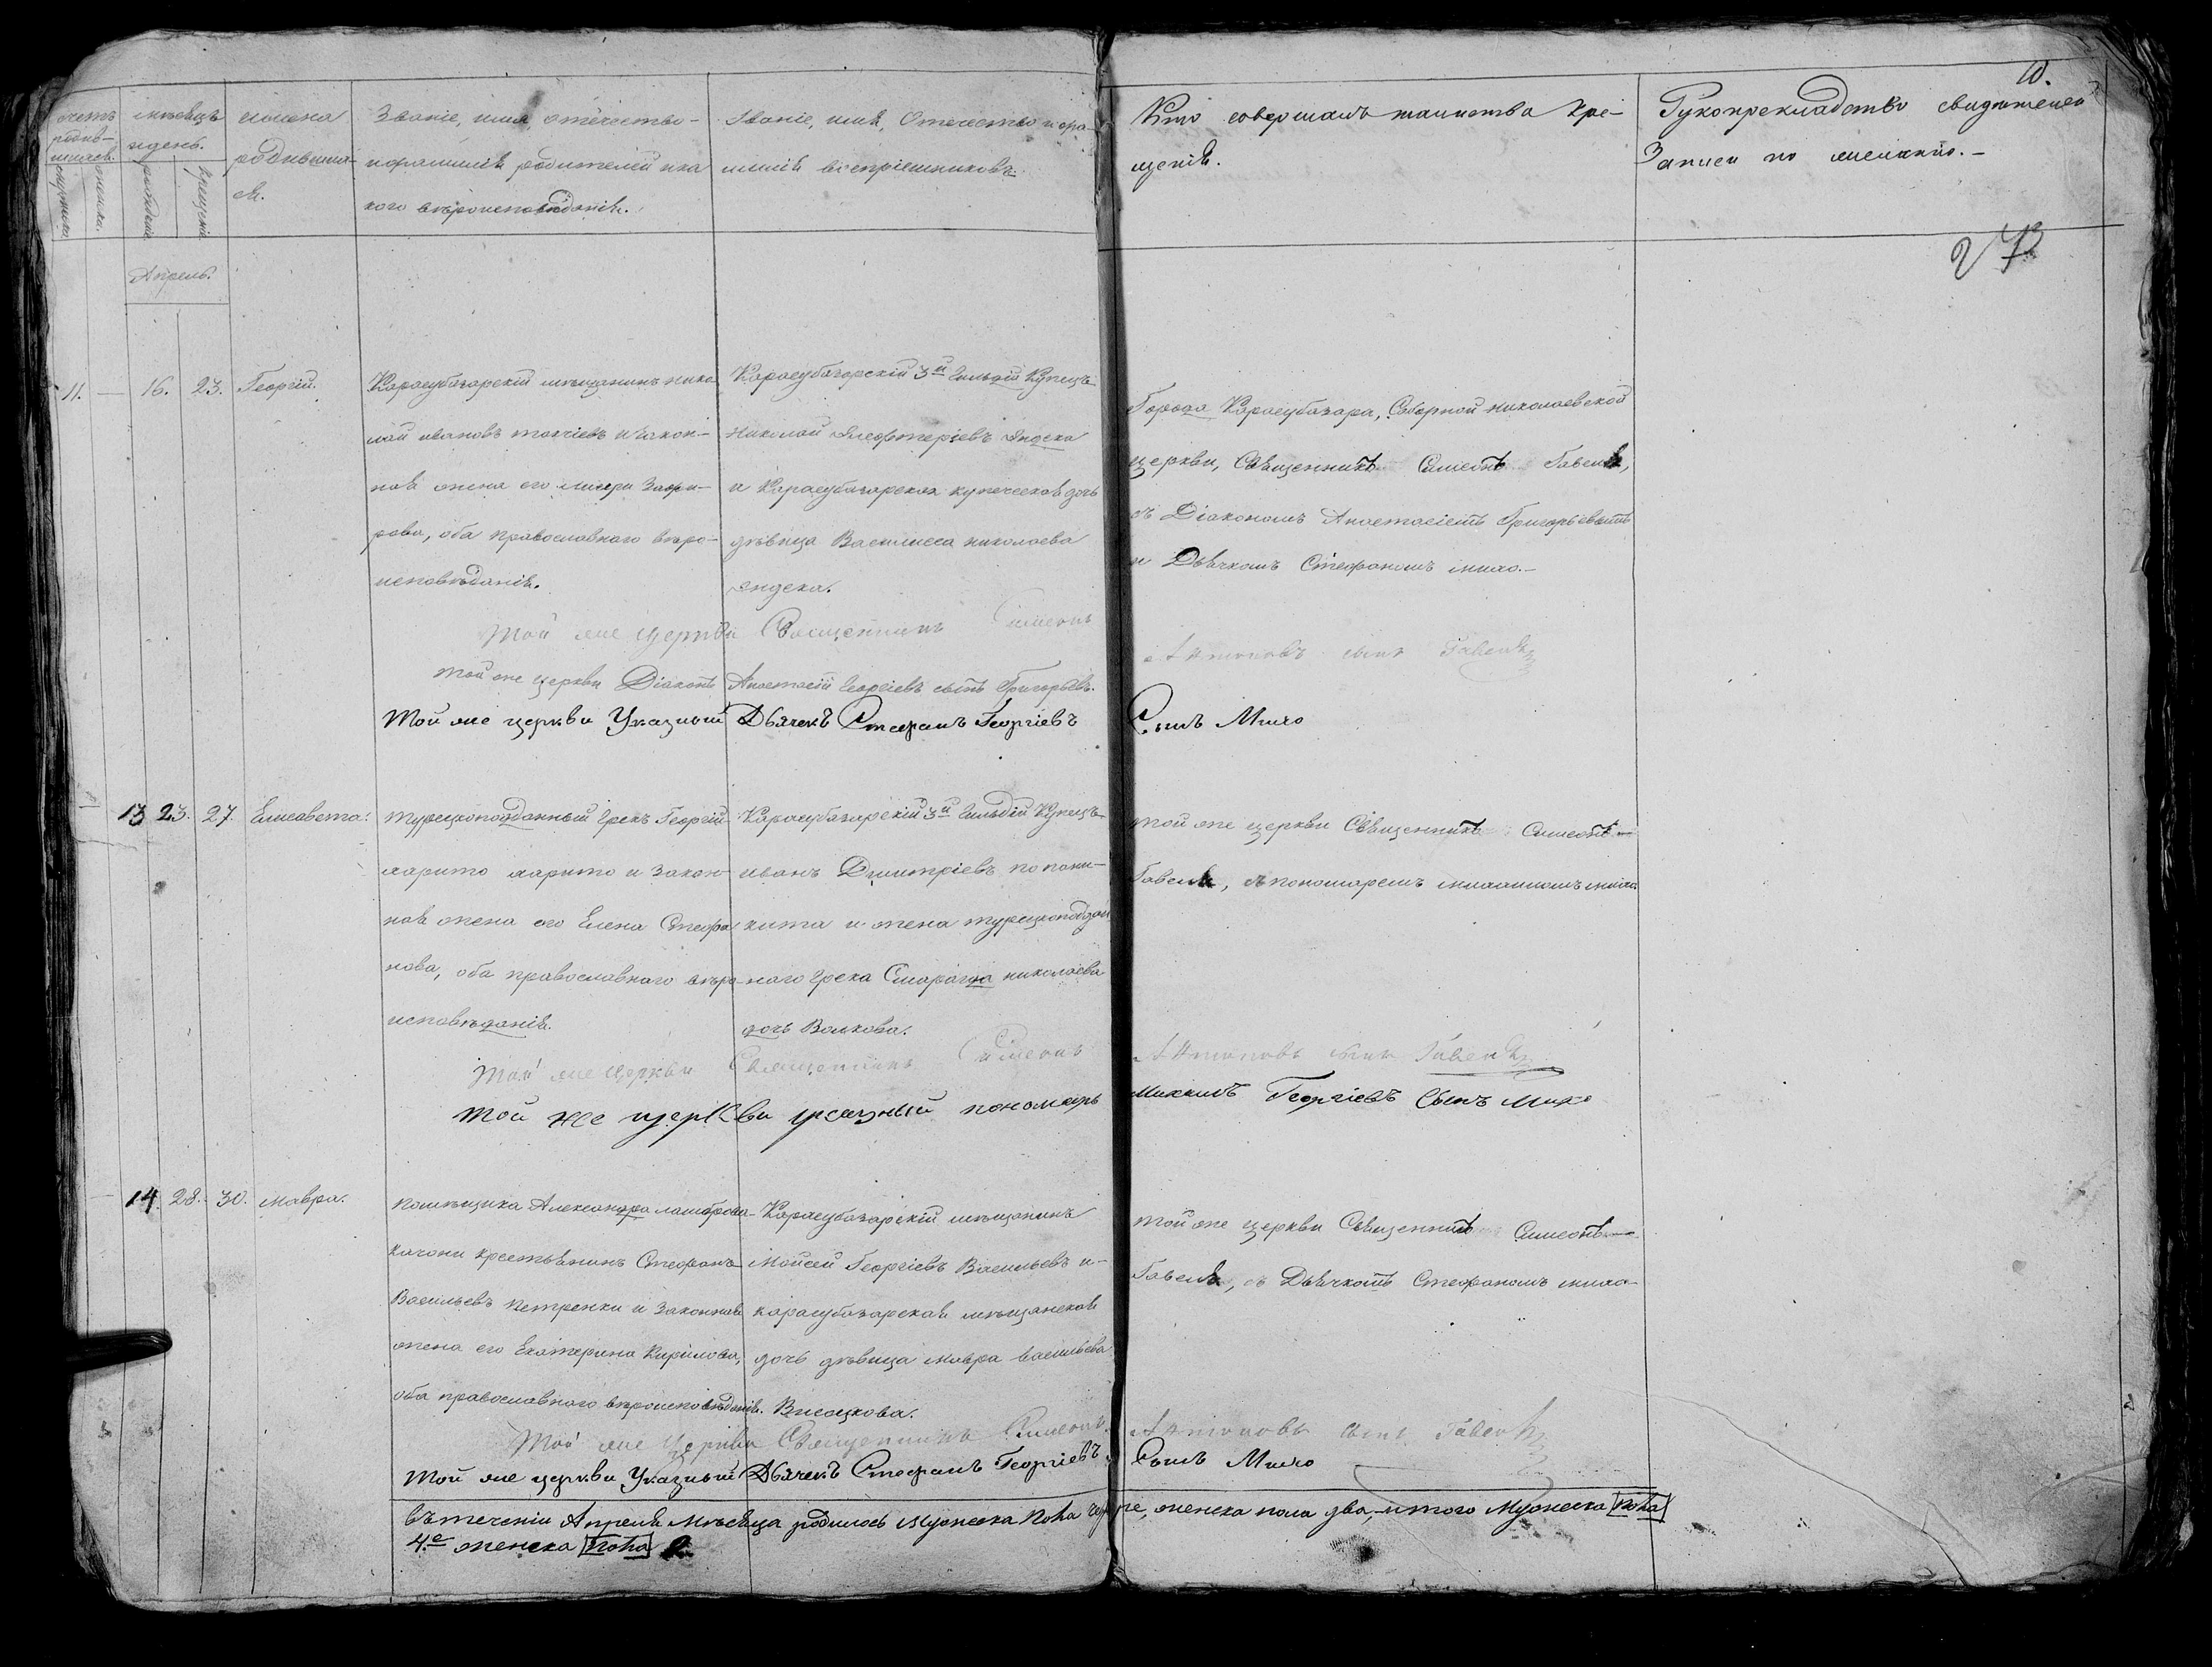 10.
счетъ родив-шихся.
мужеска. женска.
мѣсяцъ и день.
рожденіе. крещенія
имена родивших-ся.
Званіе, имя, отечество-
и фамилія родителей и ка
кого вѣроисповѣданія.
Званіе, имя, Отечество и фа-
милія воспріемниковъ.
Кто совершалъ таинства кре-
щенія.
Рукоприкладство свидетелей
Записи по желанію.-
Апрель.
11. — 16. 23. Георгій.
Карасубазарскій мѣщанинъ нико
лай ивановъ и закон-
ная жена его
рова, оба православнаго вѣро-
исповѣданія.
Карасубазарскій 3й Гильдіи Купецъ
Николай Елефтеріевъ
и Карасубазарская купеческая дочь
дѣвица Василисса николаева
Города Карасубазара, Соборной николаевской
церкви, Священникъ Симеонъ Гавеля,
съ Діакономъ Анастасіемъ Григорьевымъ
и Дьячкомъ Стефаномъ михо.-
Той же церкви Священникъ Симеонъ Антоновъ сынъ Гавеля
Той же церкви Діаконъ Анастасій Георгіевъ сынъ Григорьевъ.
Той же церкви Указный Дьячекъ Стефанъ Георгіевъ Сынъ Михо
— 13 23. 27. Елисавета.
Турецкоподданный Грекъ Георгій
харито харито и закон-
ная жена его Елена Стефа
нова, оба православнаго вѣро-
исповѣданія.
Карасубазарскій 3й Гильдіи Купецъ
иванъ Дмитріевъ попани-
кита и жена турецкоподдан
наго Грека Смарагда николаева
дочь Волкова.
Той же церкви Священникъ Симеонъ
Гавеля, съ пономаремъ михаиломъ михо.
Той же церкви Священникъ Симеонъ Антоновъ сынъ Гавеля
Той же церкви указный пономарь Михаилъ Георгіевъ Сынъ Михо
— 14. 28. 30. мавра.
помѣщика Александра ламброва
качони крестьянинъ Стефанъ
Васильевъ петренки и законная
жена его Екатерина Кирилова,
оба православнаго вѣроисповѣданія.
Карасубазарскій мѣщанинъ
Мойсей Георгіевъ Васильевъ и-
карасубазарская мѣщанская
дочь дѣвица мавра васильева
Висоцкова.
Той же церкви Священникъ Симеонъ
Гавеля, съ Дьячкомъ Стефаномъ михо-
Той же церкви Священникъ Симеонъ Антоновъ сынъ Гавеля
Той же церкви Указный Дьячекъ Стефанъ Георгіевъ Сынъ Михо
Въ теченіи Апреля Мѣсяца родилось Мужеска пола четыре, женска пола два, -итого Мужеска пола
4.е женска пола 2.